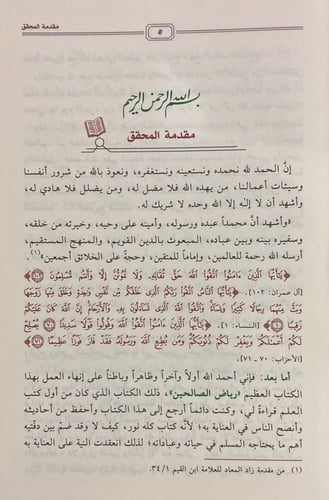 مقدمة المحقق
٥
بسم الله الرحمن الرحيم
مقدمة المحقق
إنَّ الحمد لله نحمده ونستعينه ونستغفره، ونعوذ بالله من شرور أنفسنا
وسيئات أعمالنا، من يهده الله فلا مضل له، ومن يضلل فلا هادي له،
وأشهد أن لا إله إلا الله وحده لا شريك له.
«وأشهد أن محمداً عبده ورسوله، وأمينه على وحيه، وخيرته من خلقه،
وسفيره بينه وبين عباده، المبعوث بالدين القويم، والمنهج المستقيم،
أرسله الله رحمة للعالمين، وإماماً للمتقين، وحجةً على الخلائق أجمعين»(١).
﴿يَٰٓأَيُّهَا ٱلَّذِينَ ءَامَنُوا۟ ٱتَّقُوا۟ ٱللَّهَ حَقَّ تُقَاتِهِۦ وَلَا تَمُوتُنَّ إِلَّا وَأَنتُم مُّسْلِمُونَ ١٠٢﴾
[آل عمران: ١٠٢]. ﴿يَٰٓأَيُّهَا ٱلنَّاسُ ٱتَّقُوا۟ رَبَّكُمُ ٱلَّذِى خَلَقَكُم مِّن نَّفْسٍ وَٰحِدَةٍ وَخَلَقَ مِنْهَا زَوْجَهَا
وَبَثَّ مِنْهُمَا رِجَالًا كَثِيرًا وَنِسَآءً وَٱتَّقُوا۟ ٱللَّهَ ٱلَّذِى تَسَآءَلُونَ بِهِۦ وَٱلْأَرْحَامَ إِنَّ ٱللَّهَ كَانَ عَلَيْكُمْ
رَقِيبًا ١﴾ [النساء: ١]. ﴿يَٰٓأَيُّهَا ٱلَّذِينَ ءَامَنُوا۟ ٱتَّقُوا۟ ٱللَّهَ وَقُولُوا۟ قَوْلًا سَدِيدًا ٧٠ يُصْلِحْ
لَكُمْ أَعْمَٰلَكُمْ وَيَغْفِرْ لَكُمْ ذُنُوبَكُمْ وَمَن يُطِعِ ٱللَّهَ وَرَسُولَهُۥ فَقَدْ فَازَ فَوْزًا عَظِيمًا ٧١﴾
[الأحزاب: ٧٠ - ٧١].
أما بعد: فإني أحمد الله أولاً وآخراً وظاهراً وباطناً على إنهاء العمل بهذا
الكتاب العظيم «رياض الصالحين»، ذلك الكتاب الذي كان من أول كتب
العلم قراءةً لي، وكنت دائماً أرجع إلى هذا الكتاب وأحفظ من أحاديثه
وأنصح الناس في العناية به؛ لأنَّه كتاب كله نور، كيف لا وقد ضمّ بين دفّتيه
أهم ما يحتاجه المسلم في حياته وعباداته؛ لذلك انعقدت النية على العناية به
(١) من مقدمة زاد المعاد للعلامة ابن القيم ٣٤/١.